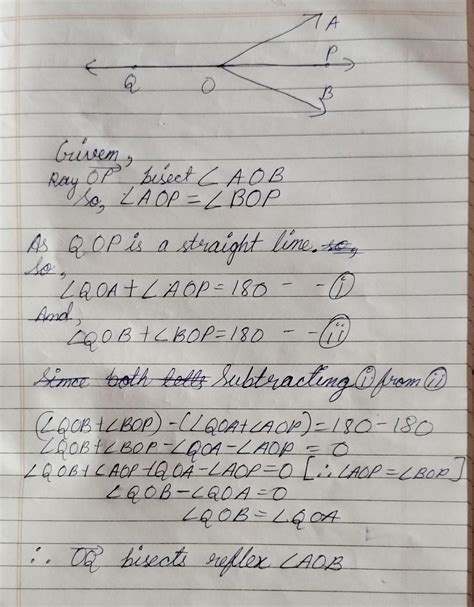 A
P
Q
O
B
Given,
Ray OP bisect ∠AOB
So, ∠AOP = ∠BOP
As QOP is a straight line. so,
So,
∠QOA + ∠AOP = 180 - - (i)
And,
∠QOB + ∠BOP = 180 - - (ii)
Since both Subtracting (i) from (ii)
(∠QOB + ∠BOP) - (∠QOA + ∠AOP) = 180 - 180
∠QOB + ∠BOP - ∠QOA - ∠AOP = 0
∠QOB + ∠AOP - ∠QOA - ∠AOP = 0 [∴ ∠AOP = ∠BOP]
∠QOB - ∠QOA = 0
∠QOB = ∠QOA
∴ OQ bisects reflex ∠AOB